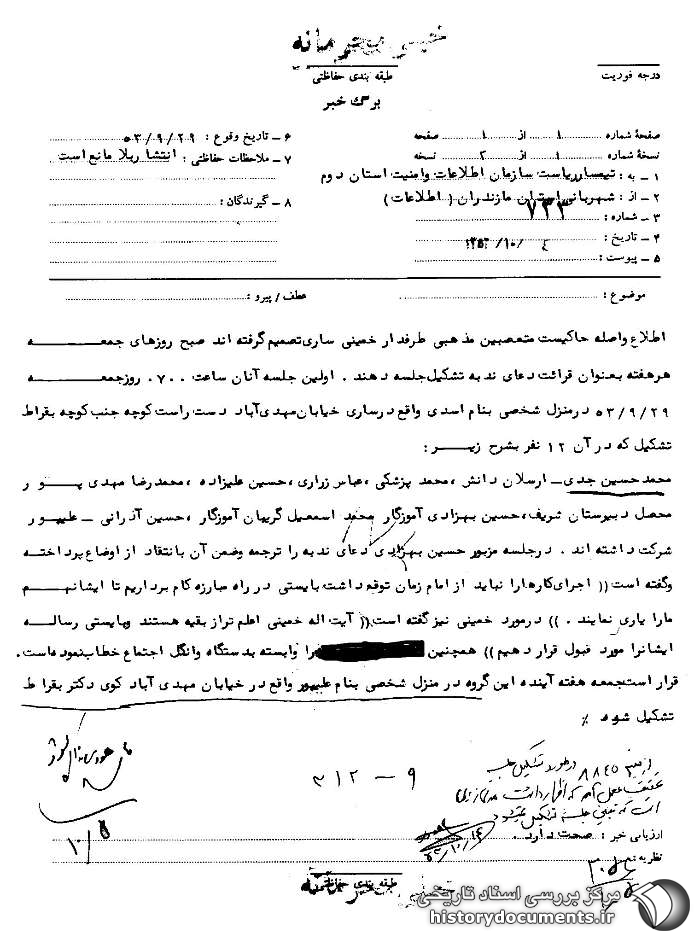 خیلی محرمانه
طبقه بندی حفاظتی
درجه فوریت
برگ خبر
صفحهٔ شماره ۱ از ۱ صفحه
نسخهٔ شماره ۱ از ۲ نسخه
۱ ـ به : تیمسار ریاست سازمان اطلاعات وامنیت استان دوم
۲ ـ از : شهربانی استان مازندران ( اطلاعات )
۳ ـ شماره : ۷۳۳
۴ ـ تاریخ : ۴ /۱۰/ ۱۳۵۳
۵ ـ پیوست :
۶ ـ تاریخ وقوع : ۵۳/۹/۲۹
۷ ـ ملاحظات حفاظتی : انتشار بلا مانع است
۸ ـ گیرندگان :
موضوع :
عطف / پیرو :
اطلاع واصله حاکیست متعصبین مذهبی طرفدار خمینی ساری تصمیم گرفته اند صبح روزهای جمعه
هرهفته بعنوان قرائت دعای ندبه تشکیل جلسه دهند . اولین جلسه آنان ساعت ۷۰۰ روز جمعه
۵۳/۹/۲۹ درمنزل شخصی بنام اسدی واقع درساری خیابان مهدی آباد دست راست کوچه جنب کوچه بقراط
تشکیل که در آن ۱۲ نفر بشرح زیر :
محمد حسین جدی ـ ارسلان دانش ، محمد پزشکی ، عباس زراری ، حسین علیزاده ، محمدرضا مهدی پور
محصل دبیرستان شریف ، حسین بهزادی آموزگار محمد اسمعیل گریبان آموزگار ، حسین آذرانی ـ علیپور
شرکت داشته اند . درجلسه مزبور حسین بهزادی دعای ندبه را ترجمه وضمن آن بانتقاد از اوضاع پرداخته
وگفته است (( اجرای کارها را نباید از امام زمان توقع داشت بایستی در راه مبارزه گام برداریم تا ایشانهم
مارا یاری نمایند . )) درمورد خمینی نیز گفته است (( آیت اله خمینی اعلم تر از بقیه هستند وبایستی رساله
ایشانرا مورد قبول قرار دهیم )) همچنین را وابسته بدستگاه وانگل اجتماع خطاب نموده است .
قرار است جمعه هفته آینده این گروه در منزل شخصی بنام علیپور واقع در خیابان مهدی آباد کوی دکتر بقراط
تشکیل شود ٪
۳۱۲ – ۹
از نیم ۸۸۴۵ درمورد تشکیل جلسه
است که
ارزیابی خبر : صحت دارد .
۵۳/۱۰/۱۴
نظریه
۱۰/۵
طبقه بندی حفاظتی
خیلی محرمانه
مرکز بررسی اسناد تاریخی
historydocuments.ir